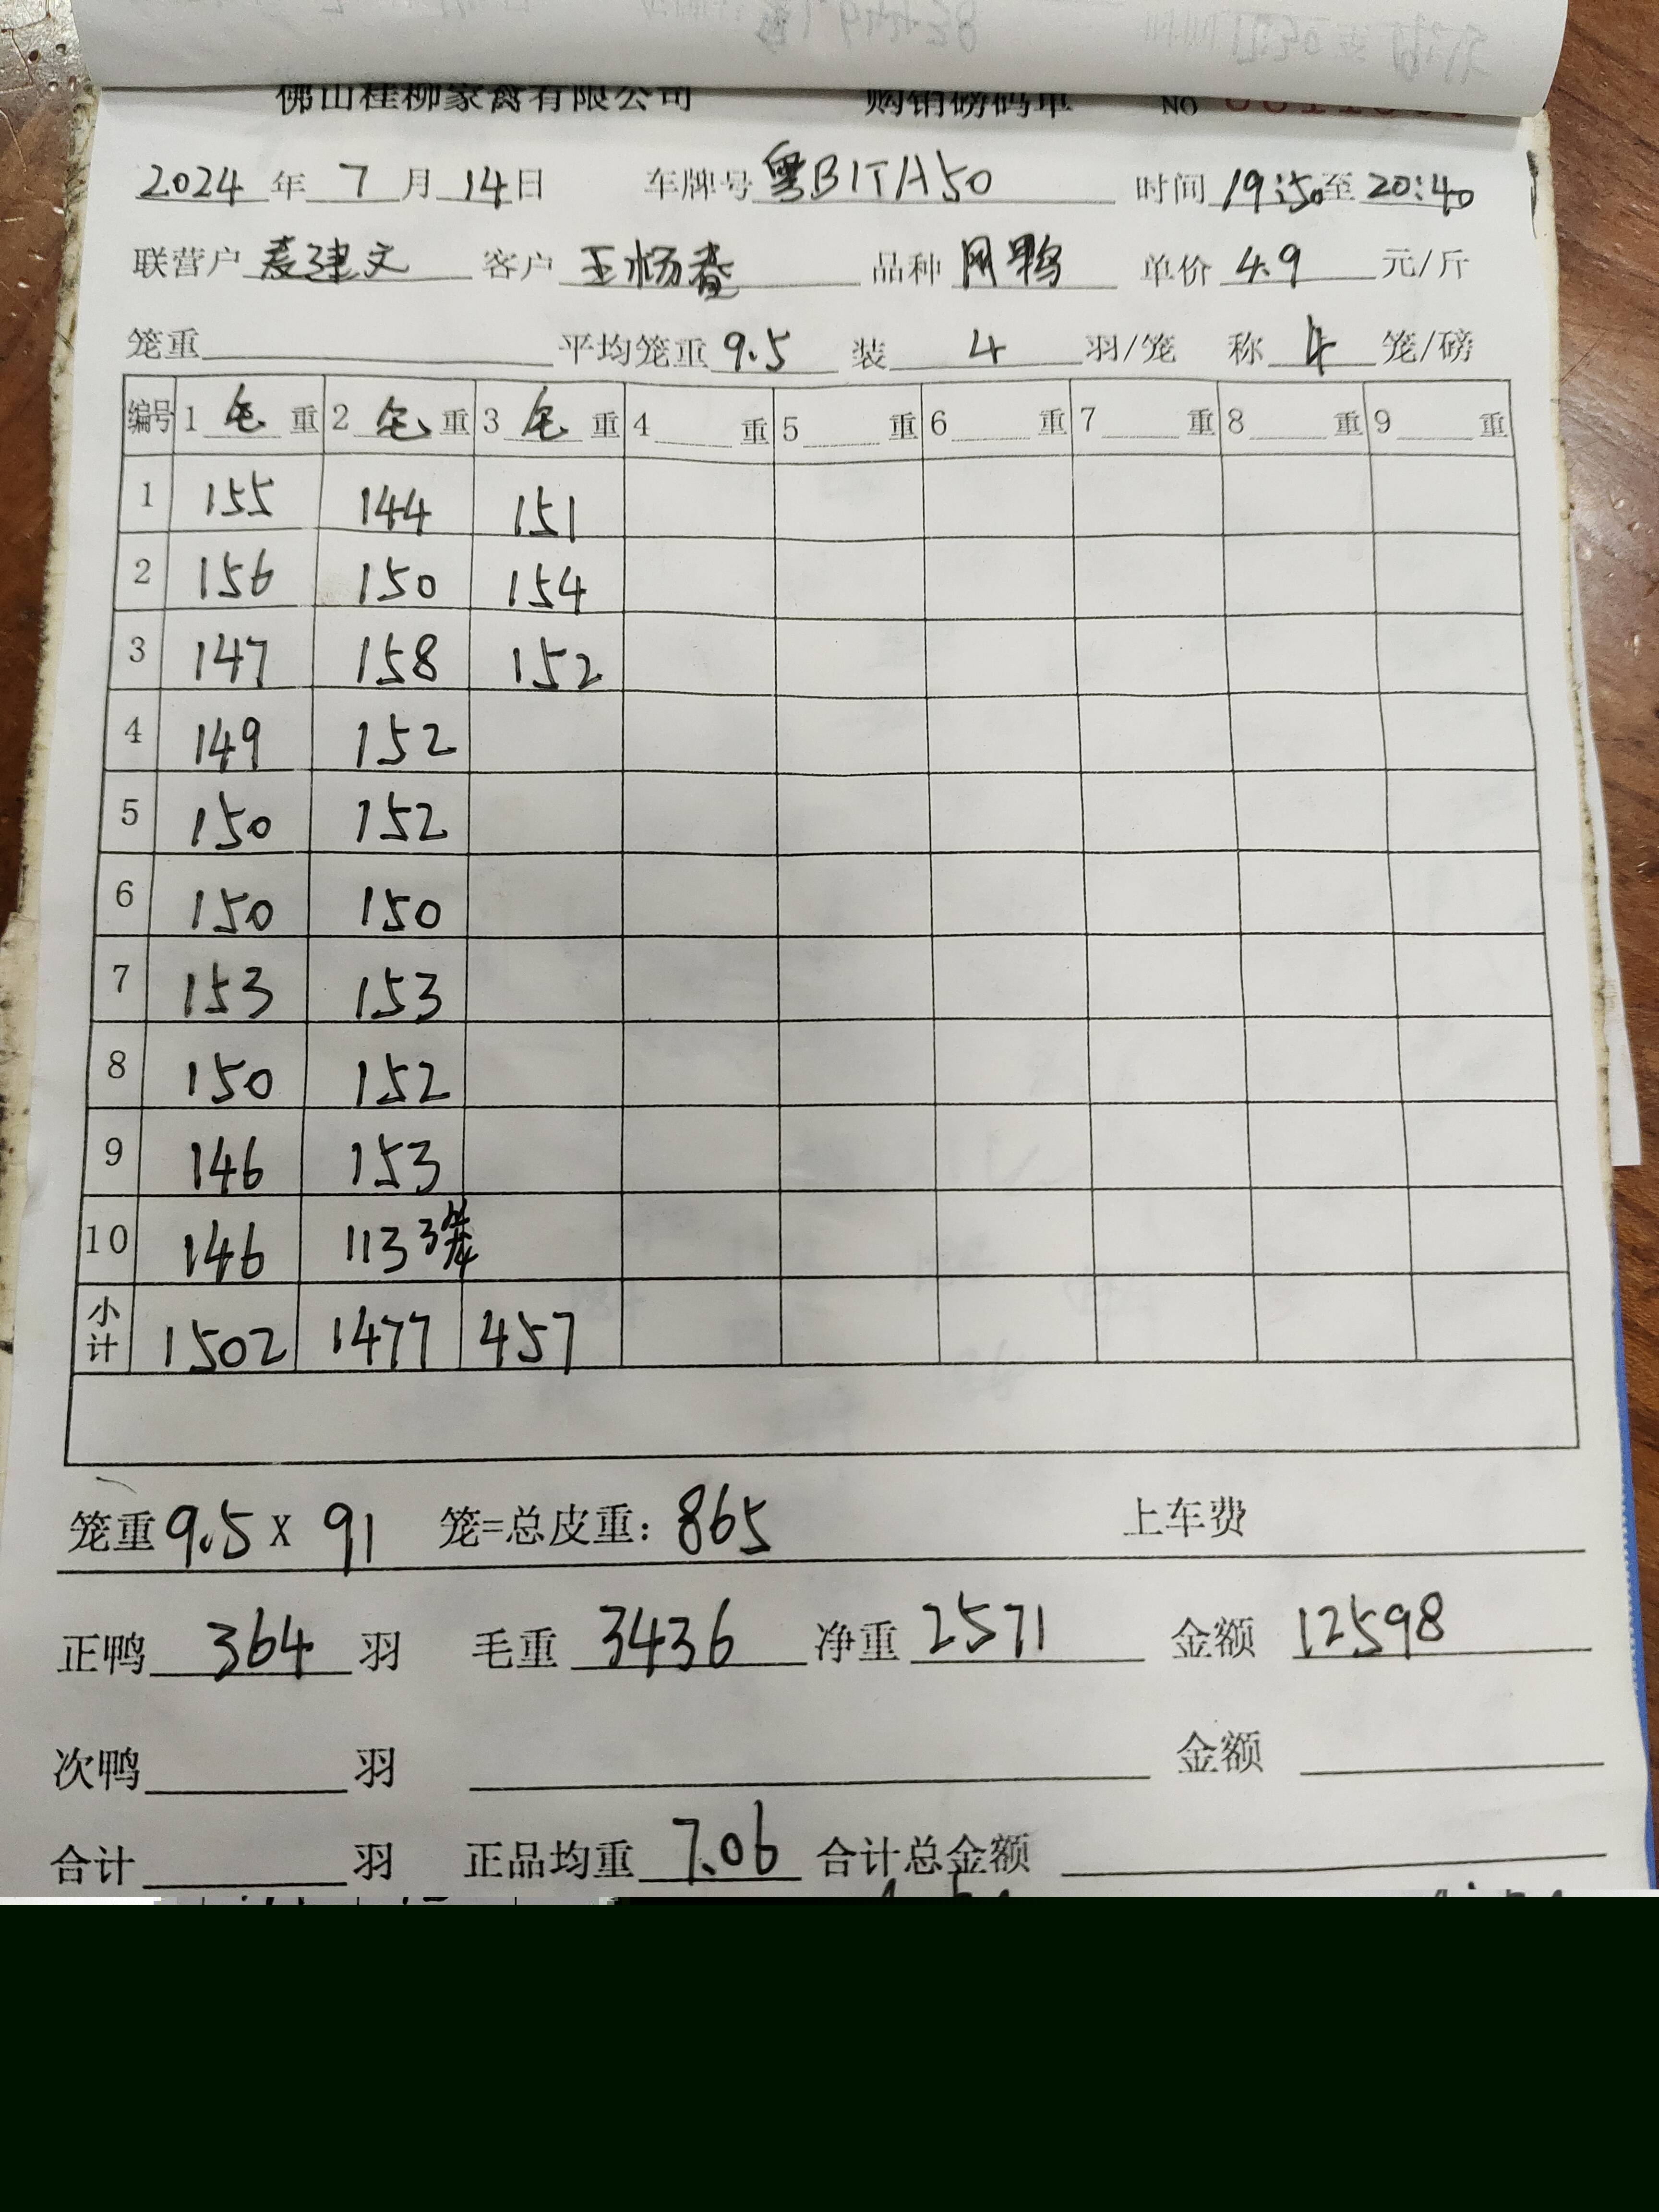 佛山桂柳家禽有限公司 购销磅码单 NO
2024 年 7 月 14 日 车牌号 粤B1TA50 时间 19:50 至 20:40
联营户 麦建文 客户 王杨春 品种 网鸭 单价 4.9 元/斤
笼重 平均笼重 9.5 装 4 羽/笼 称 4 笼/磅
编号 1 毛 重 2 毛 重 3 毛 重 4 重 5 重 6 重 7 重 8 重 9 重
1 155 144 151
2 156 150 154
3 147 158 152
4 149 152
5 150 152
6 150 150
7 153 153
8 150 152
9 146 153
10 146 113 3笼
小计 1502 1477 457
笼重 9.5 X 91 笼=总皮重: 865 上车费
正鸭 364 羽 毛重 3436 净重 2571 金额 12598
次鸭 羽 金额
合计 羽 正品均重 7.06 合计总金额